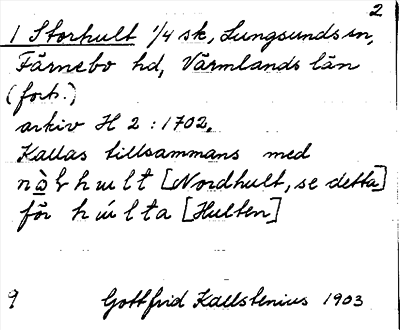 2
1 Storhult 1/4 sk, Lungsunds sn,
Färnebo hd, Värmlands län
(forts.)
arkiv H 2 : 1702.
Kallas tillsammans med
nòɽhuɩlt [Nordhult, se detta]
för húlta [Hulten]
9 Gottfrid Kallstenius 1903